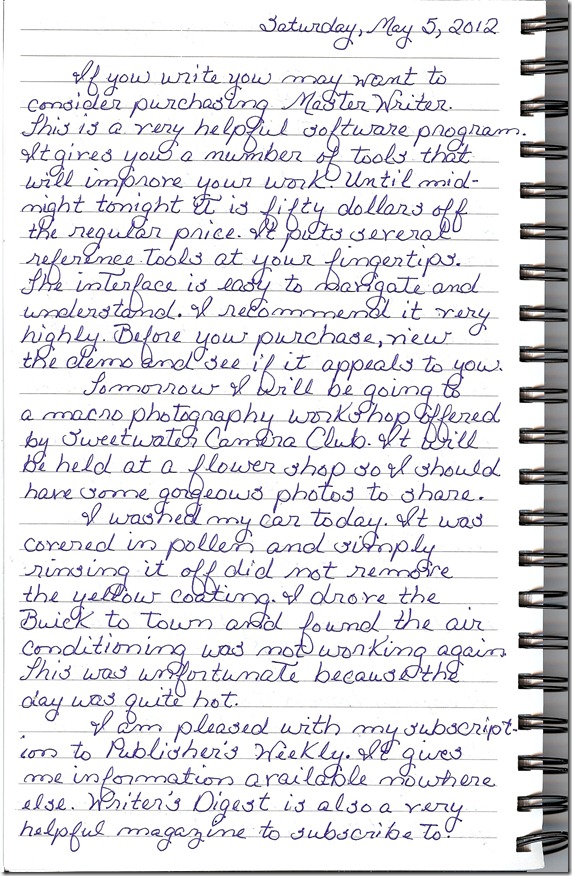 Saturday, May 5, 2012
If you write you may want to
consider purchasing MasterWriter.
This is a very helpful software program.
It gives you a number of tools that
will improve your work. Until mid-
night tonight it is fifty dollars off
the regular price. It puts several
reference tools at your fingertips.
The interface is easy to navigate and
understand. I recommend it very
highly. Before your purchase, view
the demo and see if it appeals to you.
Tomorrow I will be going to
a macro photography workshop offered
by Sweetwater Camera Club. It will
be held at a flower shop so I should
have some gorgeous photos to share.
I washed my car today. It was
covered in pollen and simply
rinsing it off did not remove
the yellow coating. I drove the
Buick to town and found the air
conditioning was not working again.
This was unfortunate because the
day was quite hot.
I am pleased with my subscript-
ion to Publisher's Weekly. It gives
me information available nowhere
else. Writer's Digest is also a very
helpful magazine to subscribe to.